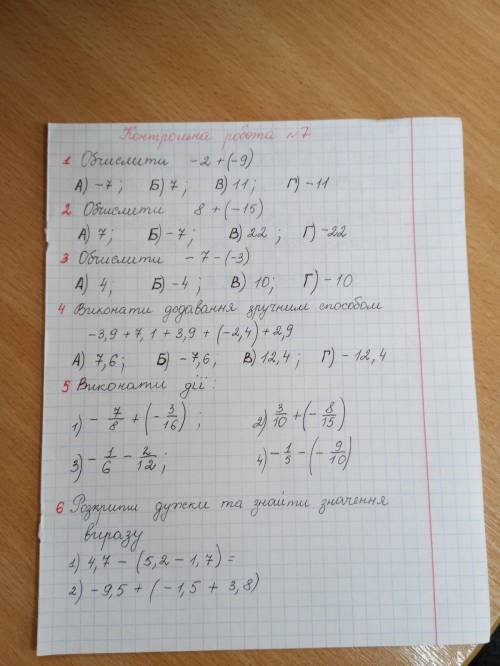 Контрольна робота №7
1 Обчислити -2 + (-9)
А) -7; Б) 7; В) 11; Г) -11
2 Обчислити 8 + (-15)
А) 7; Б) -7; В) 22; Г) -22
3 Обчислити -7 - (-3)
А) 4; Б) -4; В) 10; Г) -10
4 Виконати додавання зручним способом
-3,9 + 7,1 + 3,9 + (-2,4) + 2,9
А) 7,6; Б) -7,6, В) 12,4; Г) -12,4
5 Виконати дії:
1) -7/8 + (-3/16); 2) 3/10 + (-8/15)
3) -1/6 - 2/12; 4) -1/5 - (-9/10)
6 Розкрити дужки та знайти значення
виразу
1) 4,7 - (5,2 - 1,7) =
2) -9,5 + (-1,5 + 3,8)